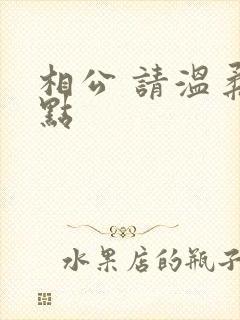 相公 請溫柔
點
水果店的瓶子